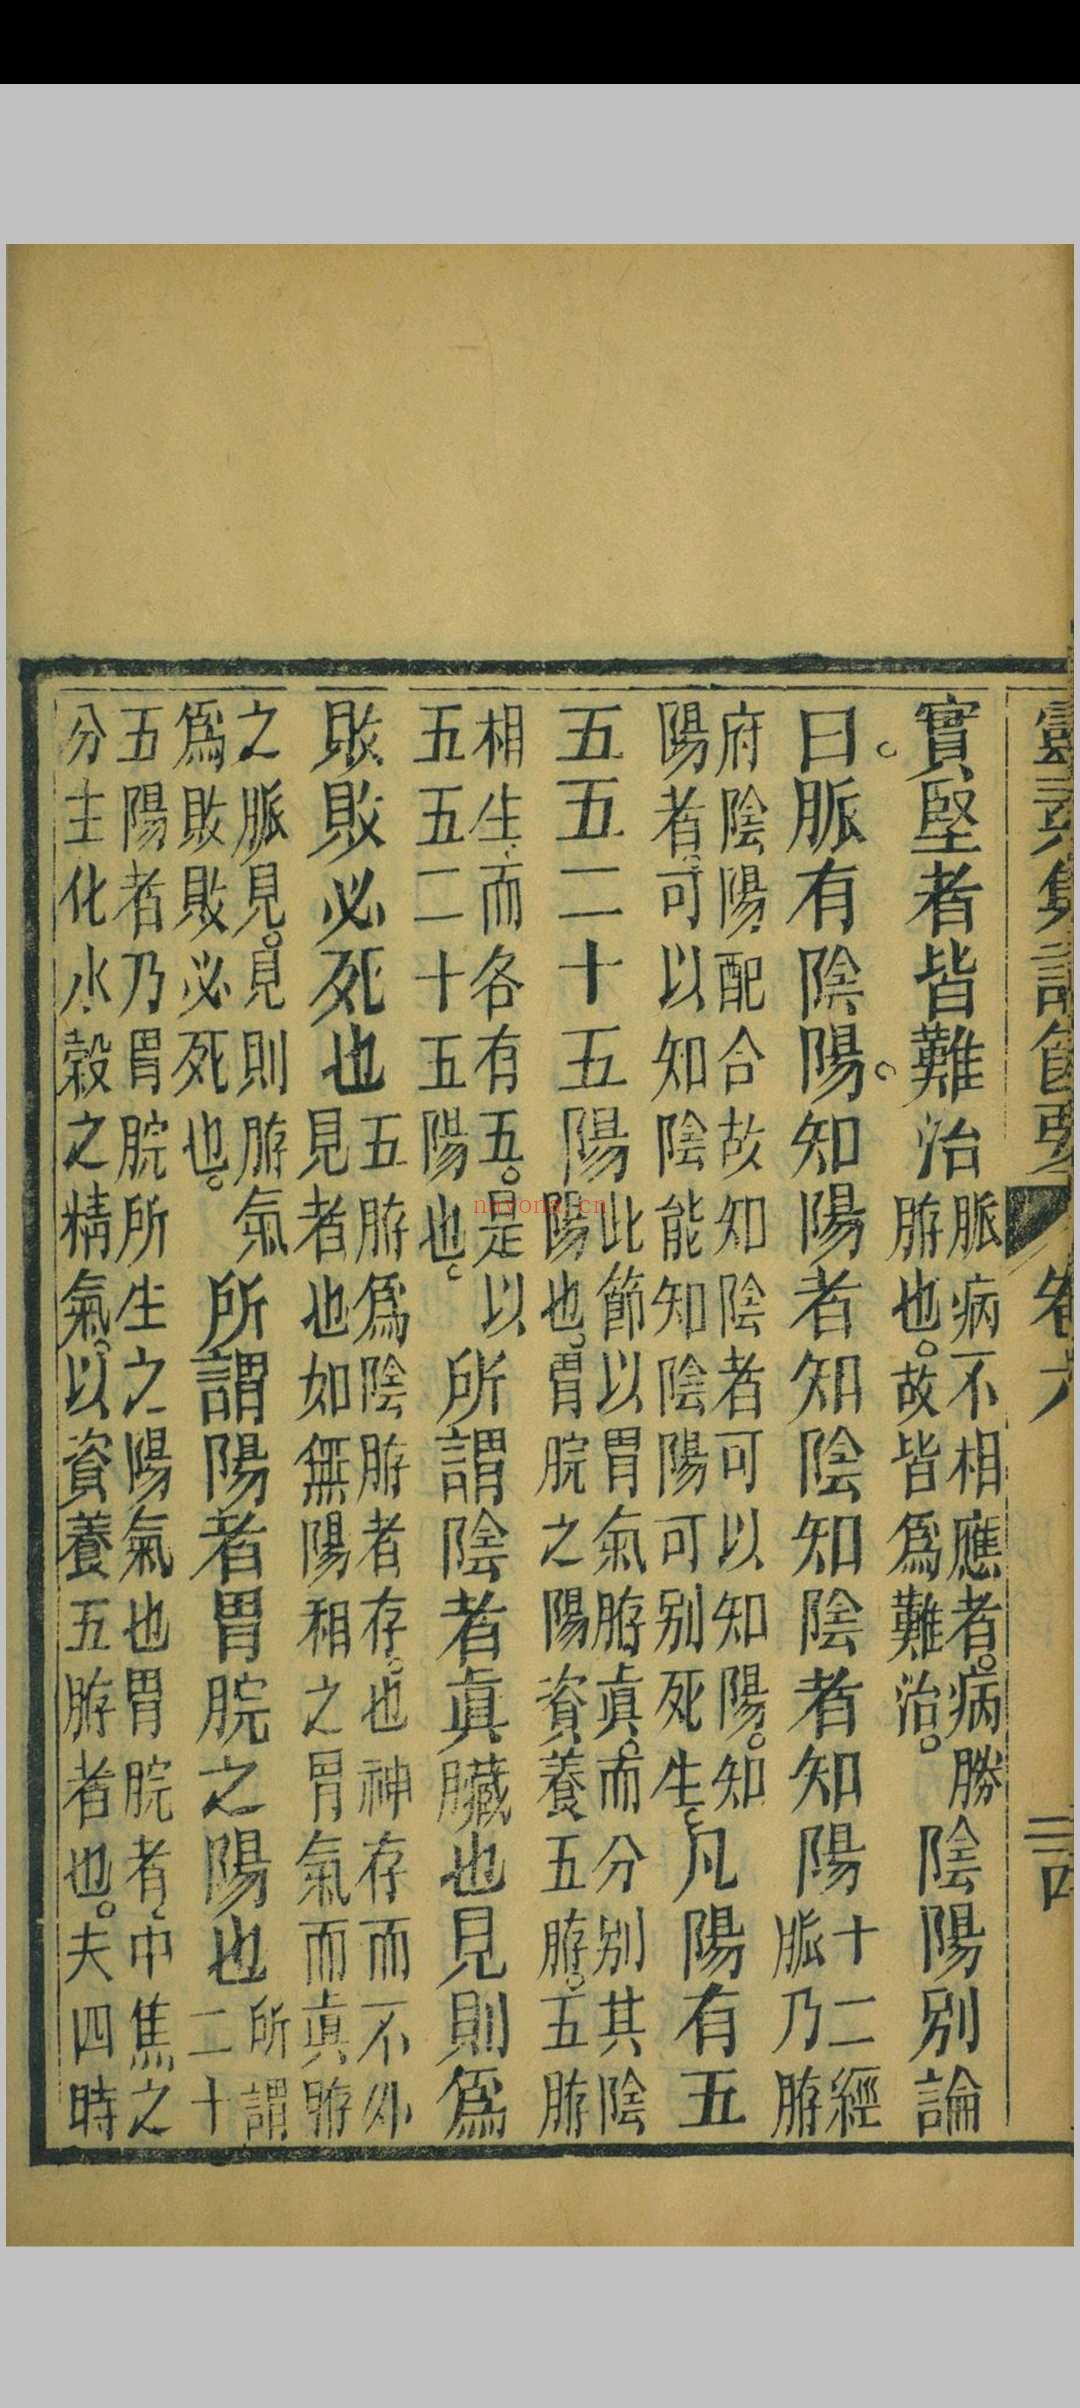 靈素集註節要 卷六 三四
實堅者皆難治
脈病不相應者。病勝
臟也。故皆爲難治。
陰陽別論
曰。脈有陰陽。知陽者知陰知陰者知陽
十二經
脈乃臟
府陰陽配合故知陰者可以知陽。知
陽者。可以知陰能知陰陽可別死生。
凡陽有五
五五二十五陽
此節以胃氣臟眞。而分別其陰
陽也。胃脘之陽資養五臟。五臟
相生、而各有五。是以
五五二十五陽也。
所謂陰者眞臟也見則爲
敗敗必死也
五臟爲陰臟者存。也神存而不外
見者也如無陽和之胃氣而眞臟
之脈見。見則臟氣
爲敗敗必死也。
所謂陽者胃脘之陽也
所謂
二十
五陽者乃胃脘所生之陽氣也胃脘者、中焦之
分主化水穀之精氣。以資養五臟者也。夫四時
nayona.cn